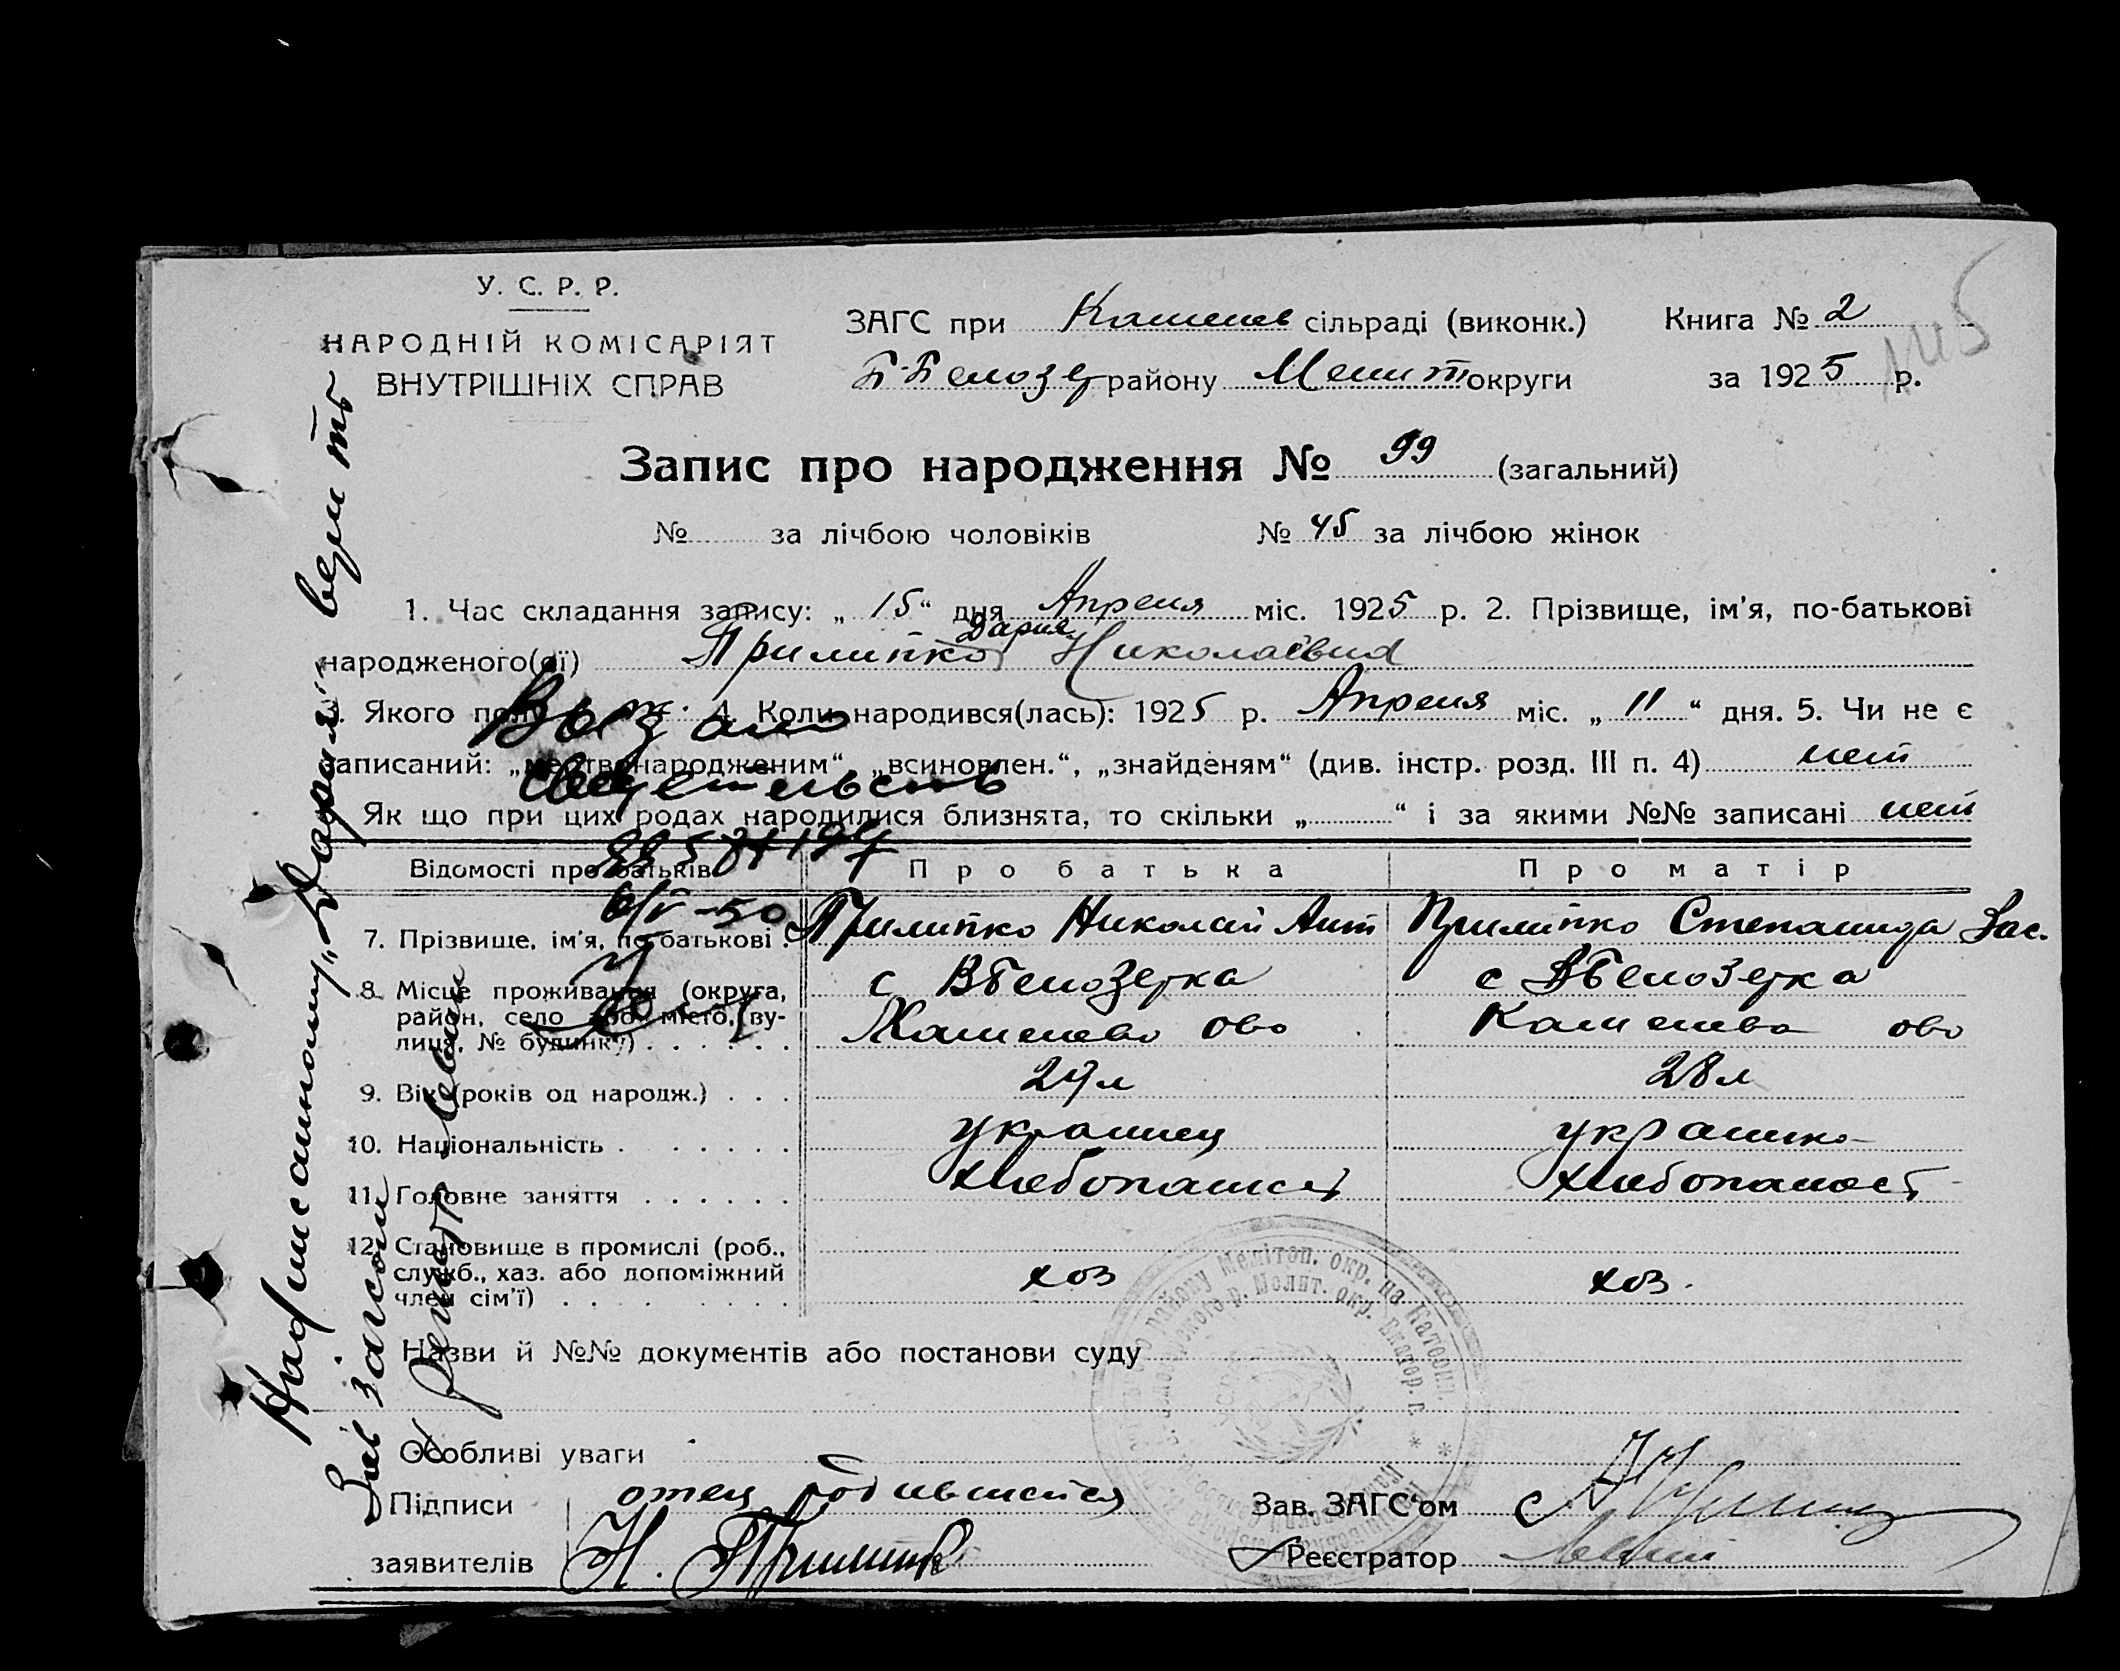 У. С. Р. Р.
НАРОДНІЙ КОМІСАРІЯТ
ВНУТРІШНІХ СПРАВ
ЗАГС при Каменев сільраді (виконк.) Книга № 2
Б-Белозер району Мелит округи за 1925 р.
Запис про народження № 99 (загальний)
№ за лічбою чоловіків № 45 за лічбою жінок
1. Час складання запису: „ 15 “ дня Апреля міс. 1925 р. 2. Прізвище, ім’я, по-батькові
Дария
народженого(ої) Прилипко Николаевна
Якого полу ж. 4. Коли народився(лась): 1925 р. Апреля міс. „ 11 “ дня. 5. Чи не є
записаний: „мертвонародженим“, „всиновлен.“, „знайденям“ (див. інстр. розд. III п. 4) нет
Як що при цих родах народилися близнята, то скільки „ “ і за якими №№ записані нет
Выдано
свидетельство
6/V-50
Відомості про батьків Про батька Про матір
7. Прізвище, ім’я, по батькові Прилипко Николай Ант Прилипко Степанида Вас.
8. Місце проживання (округа, с ВБелозерка с ВБелозерка
район, село або місто, ву-
лиця, № будинку) Каменево ово Каменево ово
9. Вік (років од народж.) 28л
10. Національність украинец украинка
11. Головне заняття хлебопашест хлебопашест
12. Становище в промислі (роб.,
служб., хаз. або допоміжний хоз хоз.
член сім’ї)
Назви й №№ документів або постанови суду
Особливі уваги
Підписи отец родившейся Зав. ЗАГС‘ом
заявителів Н. Прилипко Реєстратор
Надписанному „Дария“ верить
Зав Загсом